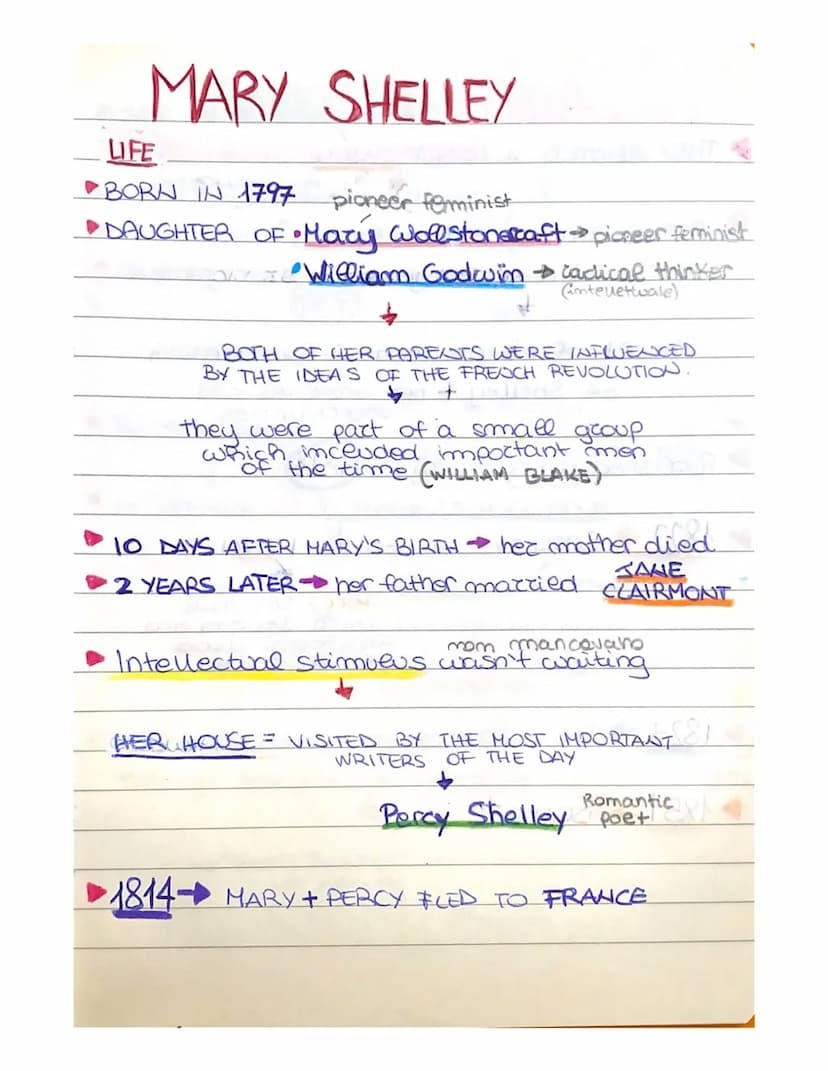 MARY SHELLEY
LIFE
BORN IN 1797 pioneer feminist
DAUGHTER OF • Mary Wollstonecraft → pioneer feminist
• William Godwin → radical thinker
(intellettuale)
↓
BOTH OF HER PARENTS WERE INFLUENCED
BY THE IDEAS OF THE FRENCH REVOLUTION.
↓ +
they were part of a small group
which included important men
of the time (WILLIAM BLAKE)
10 DAYS AFTER MARY'S BIRTH → her mother died
2 YEARS LATER → her father married JANE
CLAIRMONT
non mancavano
Intellectual stimulus wasn't waiting
↓
HER HOUSE = VISITED BY THE MOST IMPORTANT
WRITERS OF THE DAY
↓
Percy Shelley Romantic
poet
1814 → MARY + PERCY FLED TO FRANCE